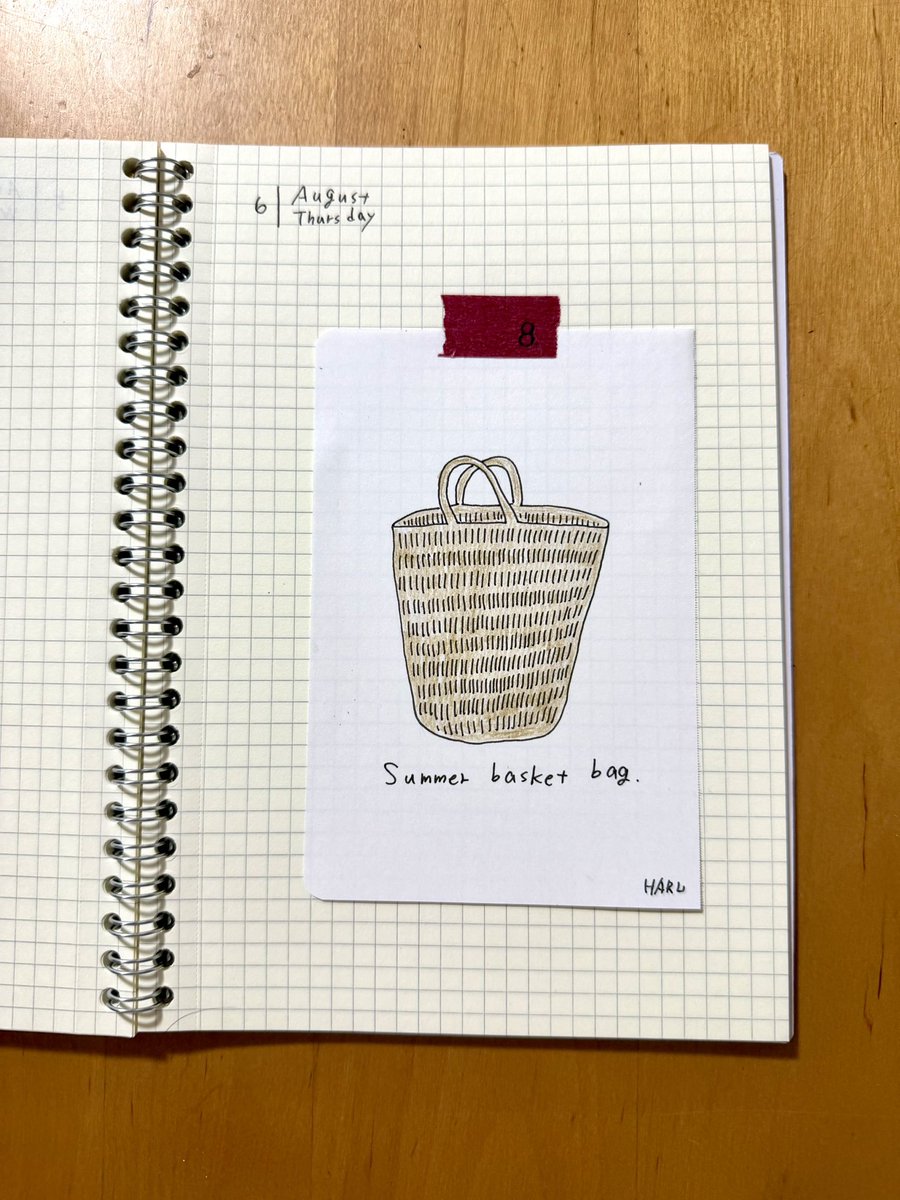 6 | August
Thursday
8
Summer basket bag.
HARU